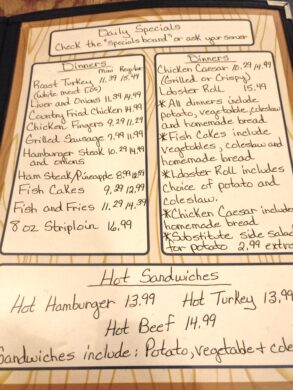 Daily Specials
Check the "Specials board" or ask your server
Dinners
Mini Regular
Roast Turkey 11.39 15.49
(white meat 1.05)
Liver and Onions 11.39 14.99
Country Fried Chicken 14.99
Chicken Fingers 9.29 11.29
Grilled Sausage 9.99 11.99
Hamburger Steak 10.29 14.99
and onions
Ham Steak/Pineapple 8.99
Fish Cakes 9.29 12.99
Fish and Fries 11.29 14.39
8 oz Striploin 16.99
Dinners
Chicken Caesar 10.29 14.99
(Grilled or Crispy)
Lobster Roll 15.99
*All dinners include
potato, vegetable, coleslaw
and homemade bread.
*Fish Cakes include
vegetables, coleslaw and
homemade bread
*Lobster Roll includes
Choice of potato and
coleslaw.
*Chicken Caesar includes
homemade bread
*Substitute side salad
for potato 2.99 extra
Hot Sandwiches
Hot Hamburger 13.99 Hot Turkey 13.99
Hot Beef 14.99
Sandwiches include: Potato, vegetable + cole